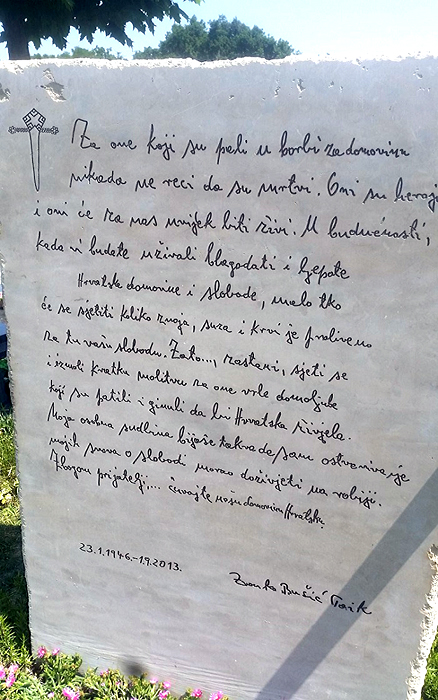 Za one koji su pali u borbi za domovinu
nikada ne reci da su mrtvi. Oni su heroji
i oni će za nas uvijek biti živi. U budućnosti,
kada vi budete uživali blagodati i ljepote
Hrvatske domovine i slobode, malo tko
će se sjetiti koliko znoja, suza i krvi je proliveno
za tu vašu slobodu. Zato..., zastani, sjeti se
i izmoli kratku molitvu za one vrle domoljube
koji su patili i ginuli da bi Hrvatska živjela.
Moja osobna sudbina bijaše takva da sam ostvarivanje
mojih snova o slobodi morao doživjeti na robiji.
Zbogom prijatelji,... čuvajte našu domovinu Hrvatsku
23.1.1946.-1.9.2013.
Zvonko Bušić Taik